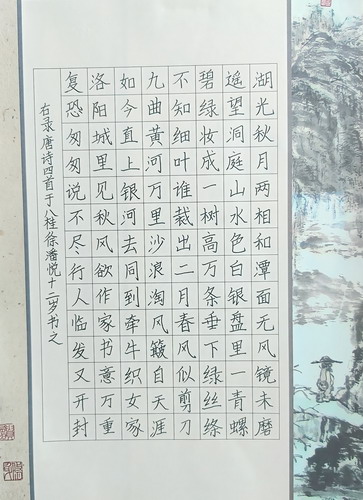 湖光秋月两相和潭面无风镜未磨
遥望洞庭山水色白银盘里一青螺
碧绿妆成一树高万条垂下绿丝绦
不知细叶谁裁出二月春风似剪刀
九曲黄河万里沙浪淘风簸自天涯
如今直上银河去同到牵牛织女家
洛阳城里见秋风欲作家书意万重
复恐匆匆说不尽行人临发又开封
右录唐诗四首于八桂徐潘悦十二岁书之